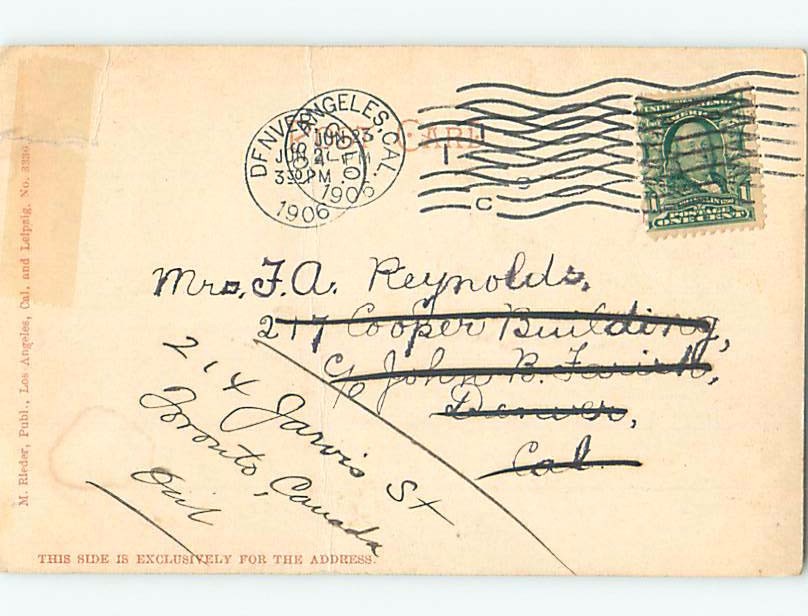 POST CARD
ANGELES, CAL.
JUN 23
1906
DENVER
JUN 2
330 PM
1906
C
POSTAGE
ONE CENT
Mrs. F. A. Reynolds,
217 Cooper Building,
c/o John B. Farish,
Denver,
Cal.
214 Jarvis St
Toronto, Canada
M. Rieder, Publ., Los Angeles, Cal. and Leipzig. No. 3330
THIS SIDE IS EXCLUSIVELY FOR THE ADDRESS.